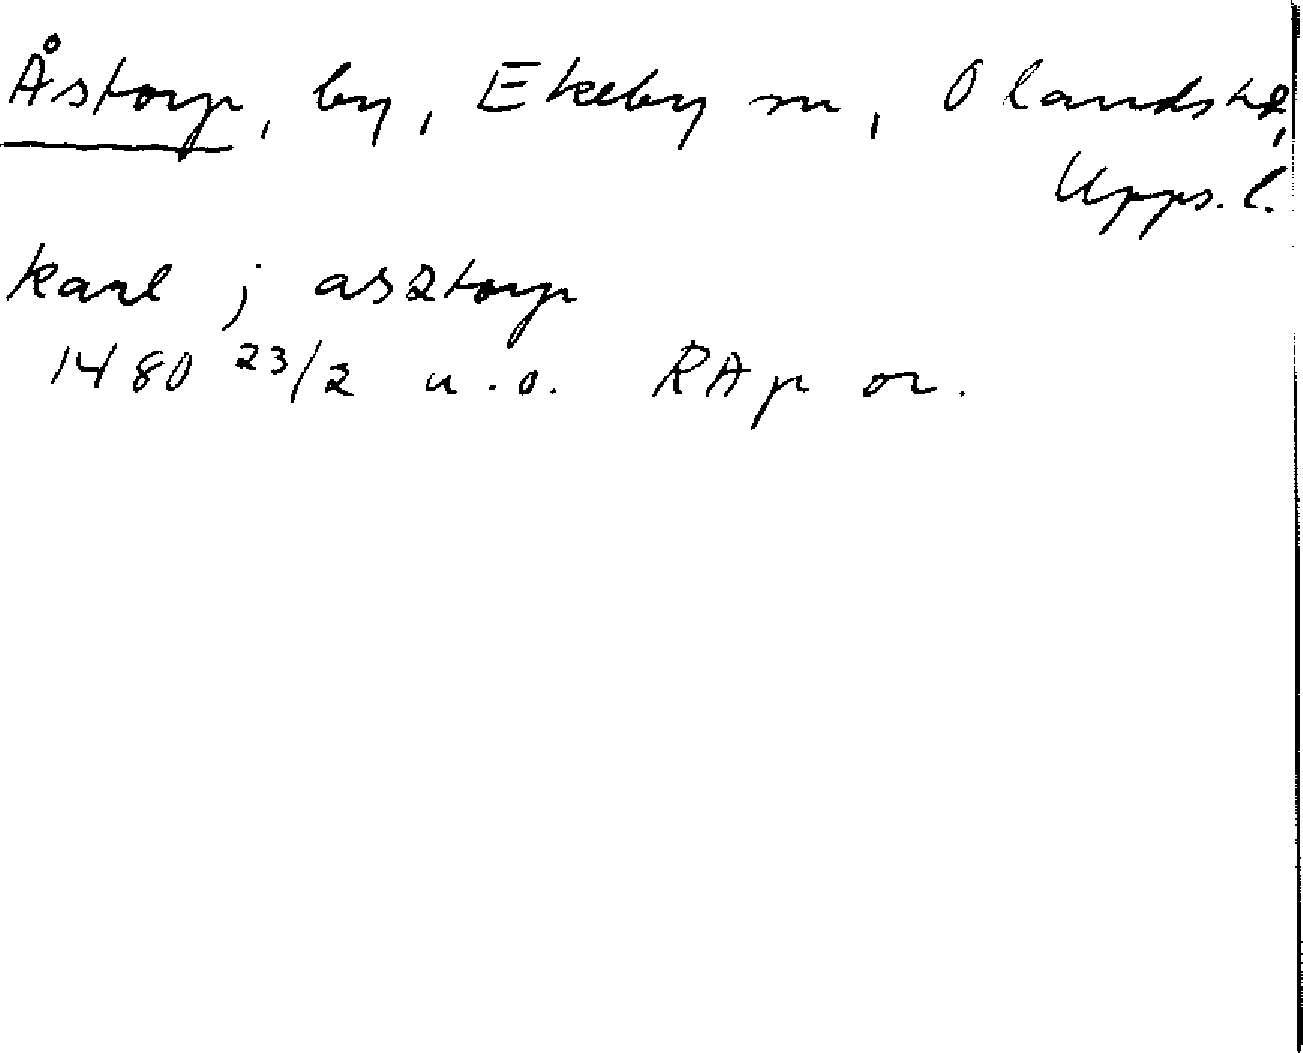 Åstorp, by, Ekeby sn, Olands hd,
Upps. l.
karl j asztorp
1480 23/2 u.o. RAp or.